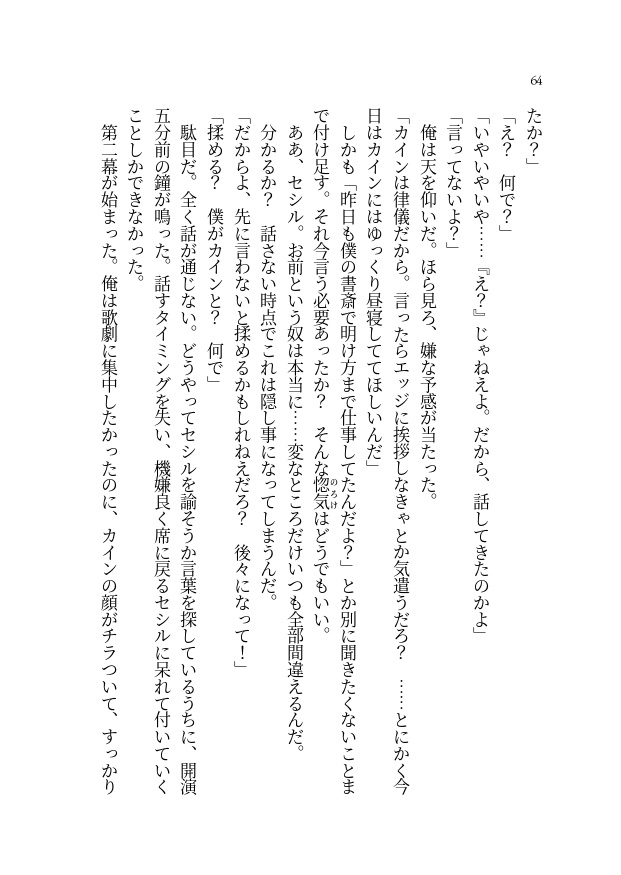 64
たか？」
「え？　何で？」
「いやいやいや……『え？』じゃねえよ。だから、話してきたのかよ」
「言ってないよ？」
俺は天を仰いだ。ほら見ろ、嫌な予感が当たった。
「カインは律儀だから。言ったらエッジに挨拶しなきゃとか気遣うだろ？　……とにかく今
日はカインにはゆっくり昼寝しててほしいんだ」
しかも「昨日も僕の書斎で明け方まで仕事してたんだよ？」とか別に聞きたくないことま
で付け足す。それ今言う必要あったか？　そんな惚気はどうでもいい。
のろけ
ああ、セシル。お前という奴は本当に……変なところだけいつも全部間違えるんだ。
分かるか？　話さない時点でこれは隠し事になってしまうんだ。
「だからよ、先に言わないと揉めるかもしれねえだろ？　後々になって！」
「揉める？　僕がカインと？　何で」
駄目だ。全く話が通じない。どうやってセシルを諭そうか言葉を探しているうちに、開演
五分前の鐘が鳴った。話すタイミングを失い、機嫌良く席に戻るセシルに呆れて付いていく
ことしかできなかった。
第二幕が始まった。俺は歌劇に集中したかったのに、カインの顔がチラついて、すっかり